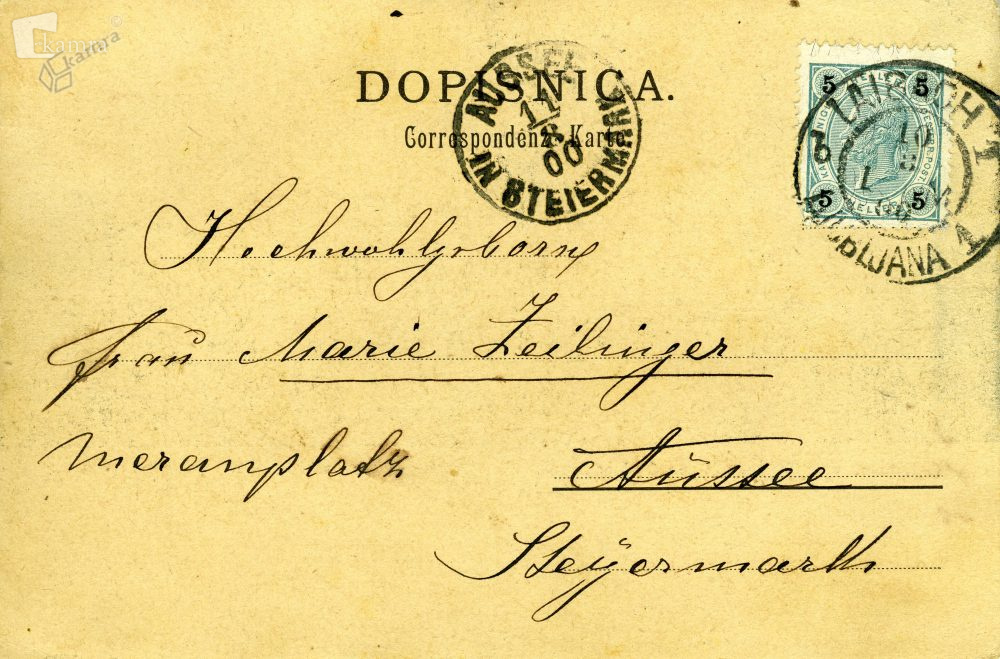 kamra
kamra
DOPISNICA.
Correspondenz-Karte
AUSSEE
11
8
00
IN STEIERMARK
5 HELLER 5
5 HELLER 5
LAIBACH 1
10
LJUBLJANA 1
Hochwohlgeborne
Frau Marie Zeilinger
Meranplatz
Aüssee
Steÿermark